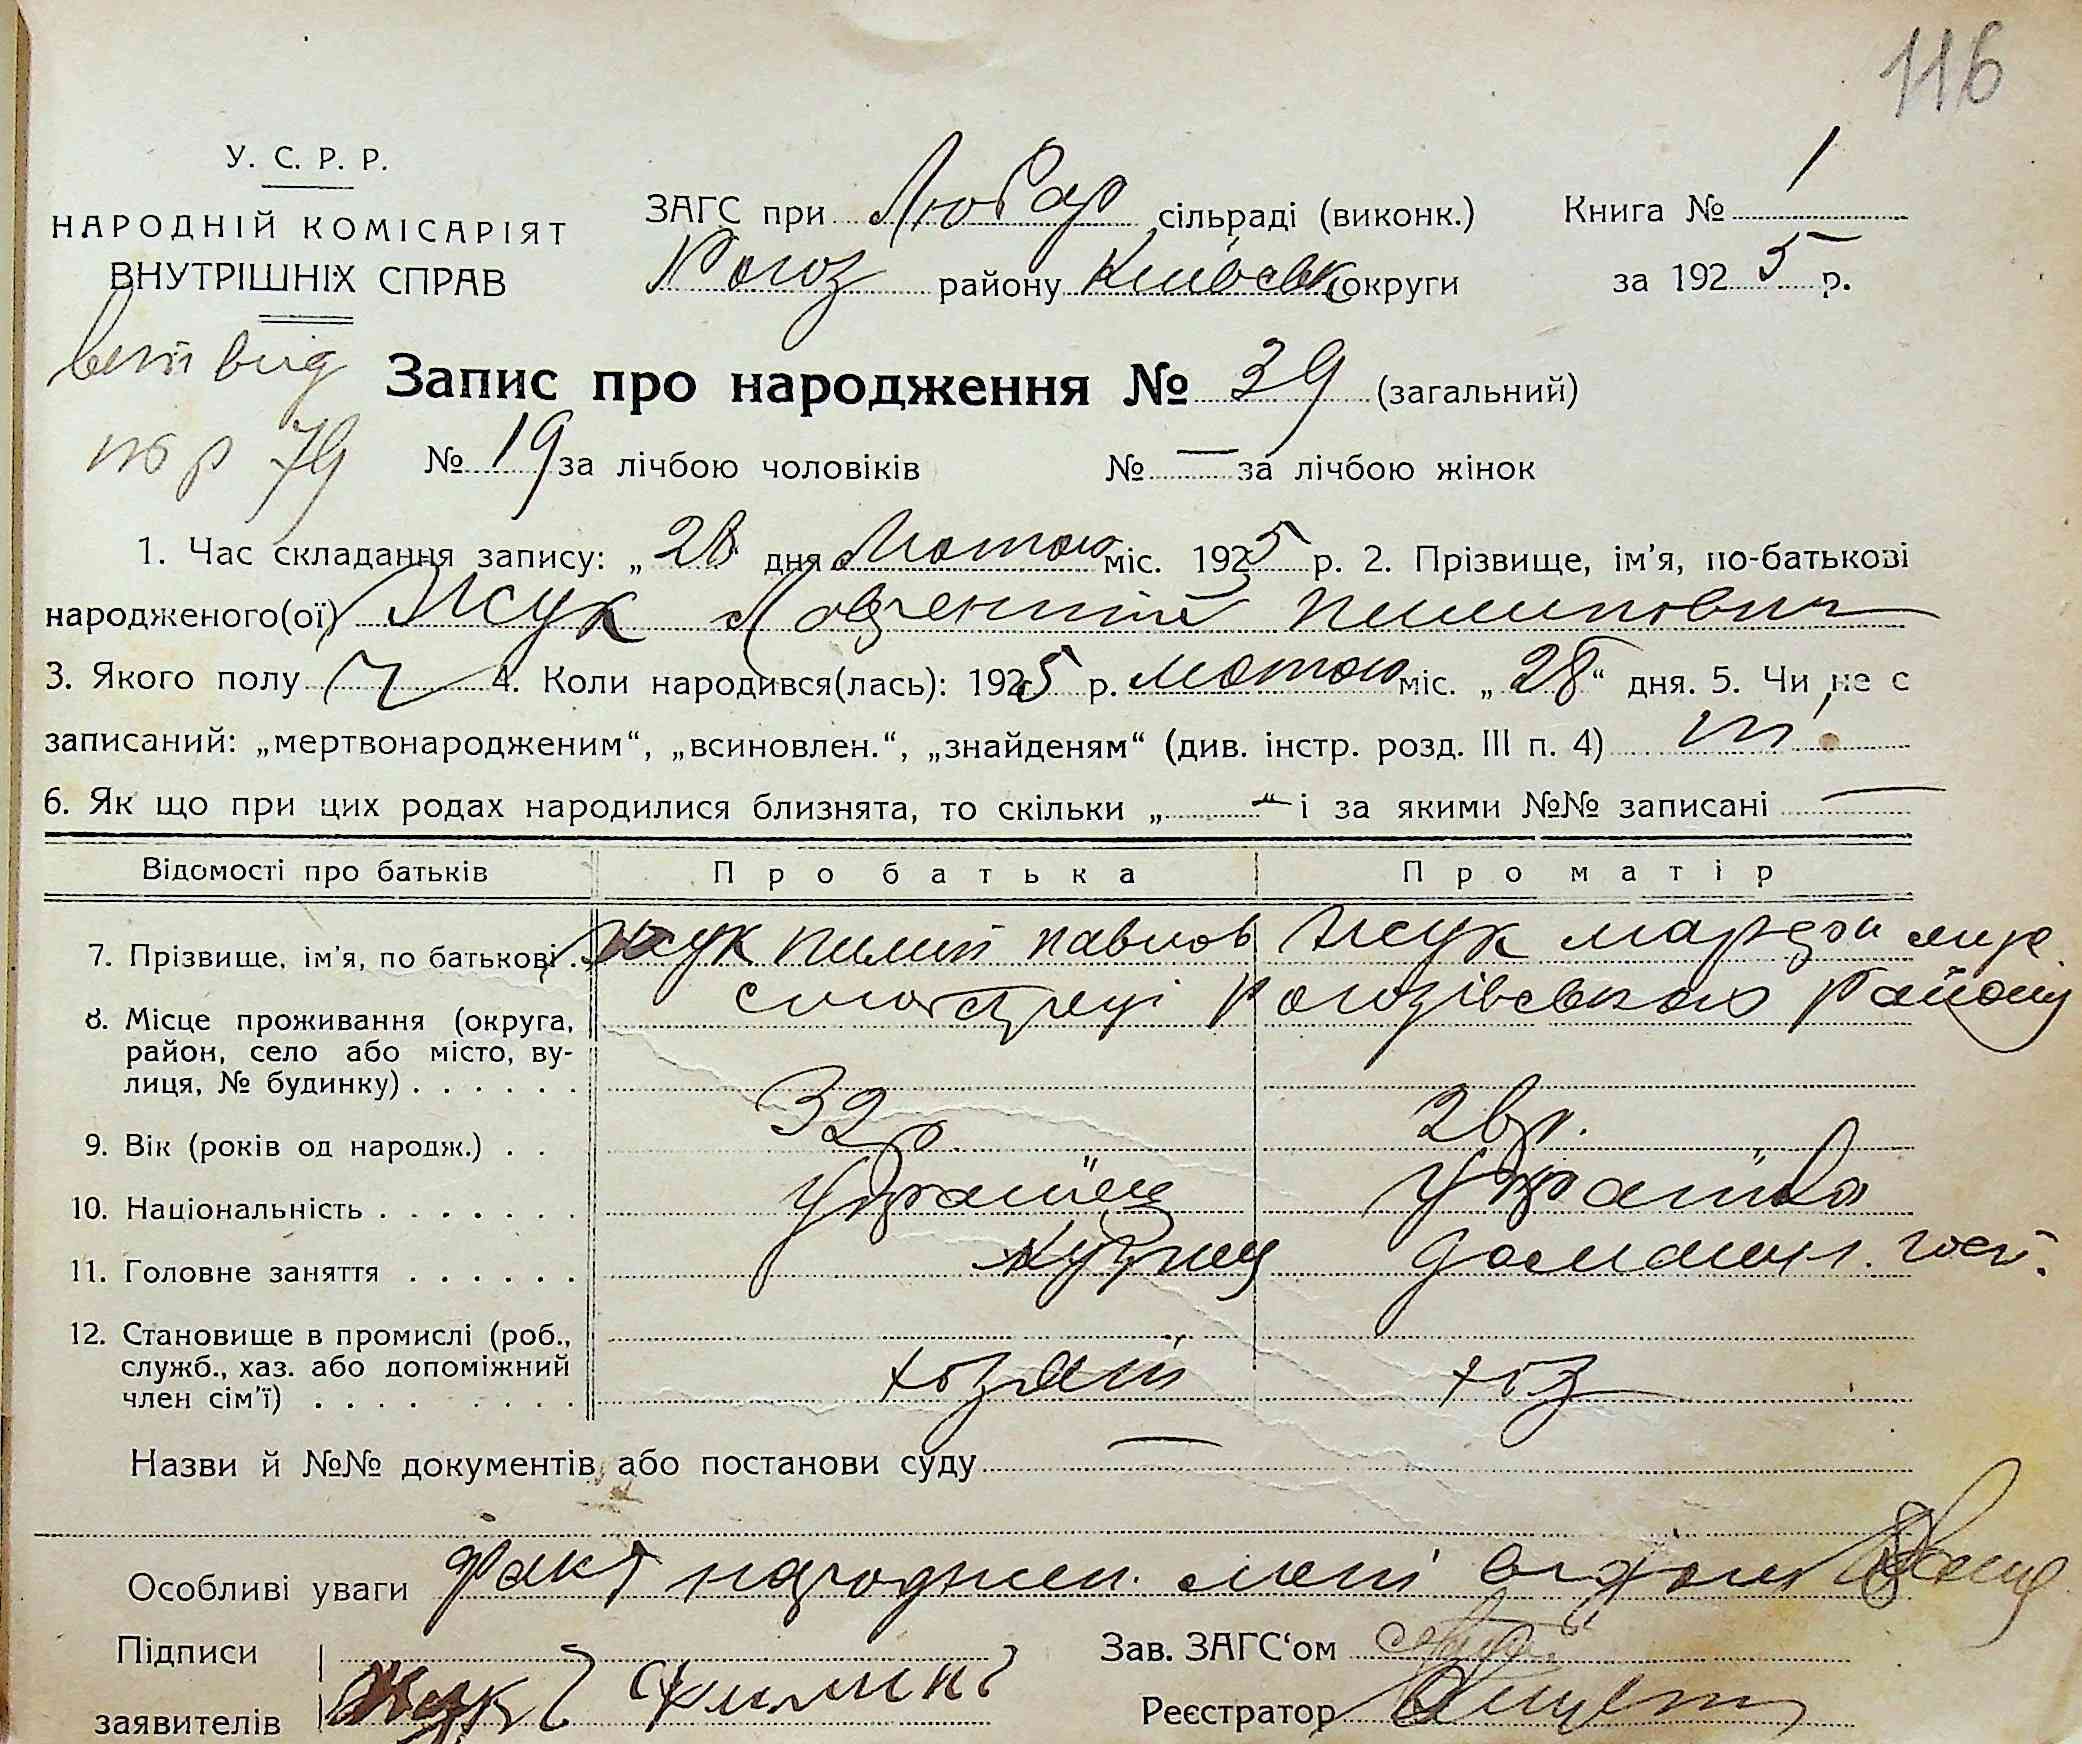 116
У. С. Р. Р.
НАРОДНІЙ КОМІСАРІЯТ
ВНУТРІШНІХ СПРАВ
ЗАГС при Любар сільраді (виконк.) Книга № 1
Рогоз району Київськ округи за 1925 р.
вид
Запис про народження № 39 (загальний)
79 № 19 за лічбою чоловіків № — за лічбою жінок
1. Час складання запису: „28 дня Лютого міс. 1925 р. 2. Прізвище, ім'я, по-батькові
народженого(ої) Жук Лаврентій Пилипович
3. Якого полу ч 4. Коли народився(лась): 1925 р. лютого міс. „28“ дня. 5. Чи не є
записаний: „мертвонародженим“, „всиновлен.“, „знайденям“ (див. інстр. розд. III п. 4)
6. Як що при цих родах народилися близнята, то скільки „ — “ і за якими №№ записані —
Відомості про батьків Про батька Про матір
7. Прізвище, ім'я, по батькові Жук Пилип Павлов Жук
8. Місце проживання (округа, Рогозівського Району
район, село або місто, ву-
лиця, № будинку)
9. Вік (років од народж.) 32 р. 28 р.
10. Національність Українец Українка
11. Головне заняття домашн. госп.
12. Становище в промислі (роб.,
служб., хаз. або допоміжний хозяїн хоз
член сім'ї)
Назви й №№ документів або постанови суду —
Особливі уваги факт народжен. мені відом
Підписи Зав. ЗАГС'ом
заявителів Жук Филип Реєстратор